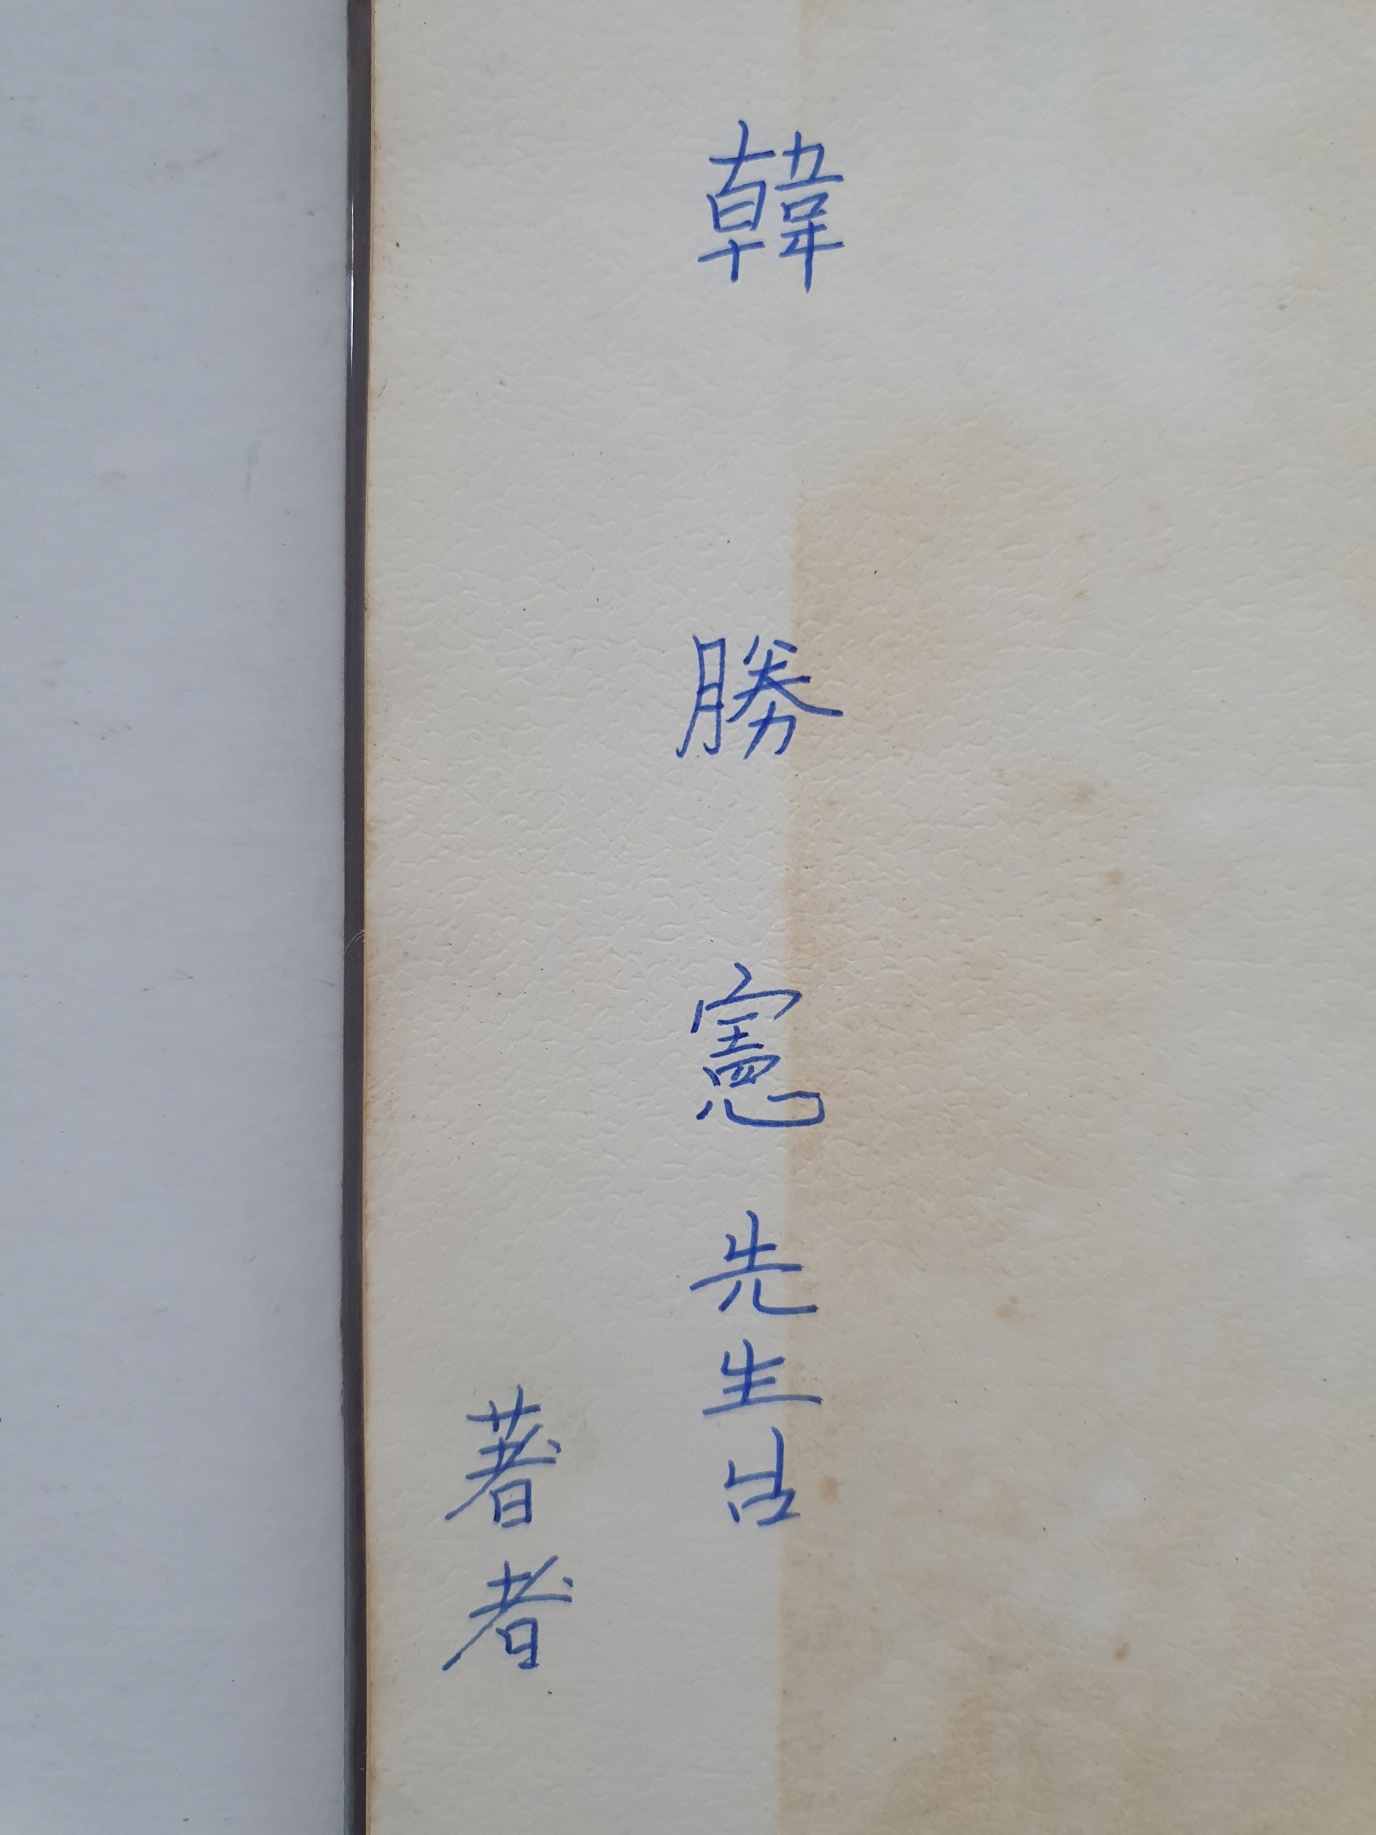 韓 勝 憲 先生님
著者